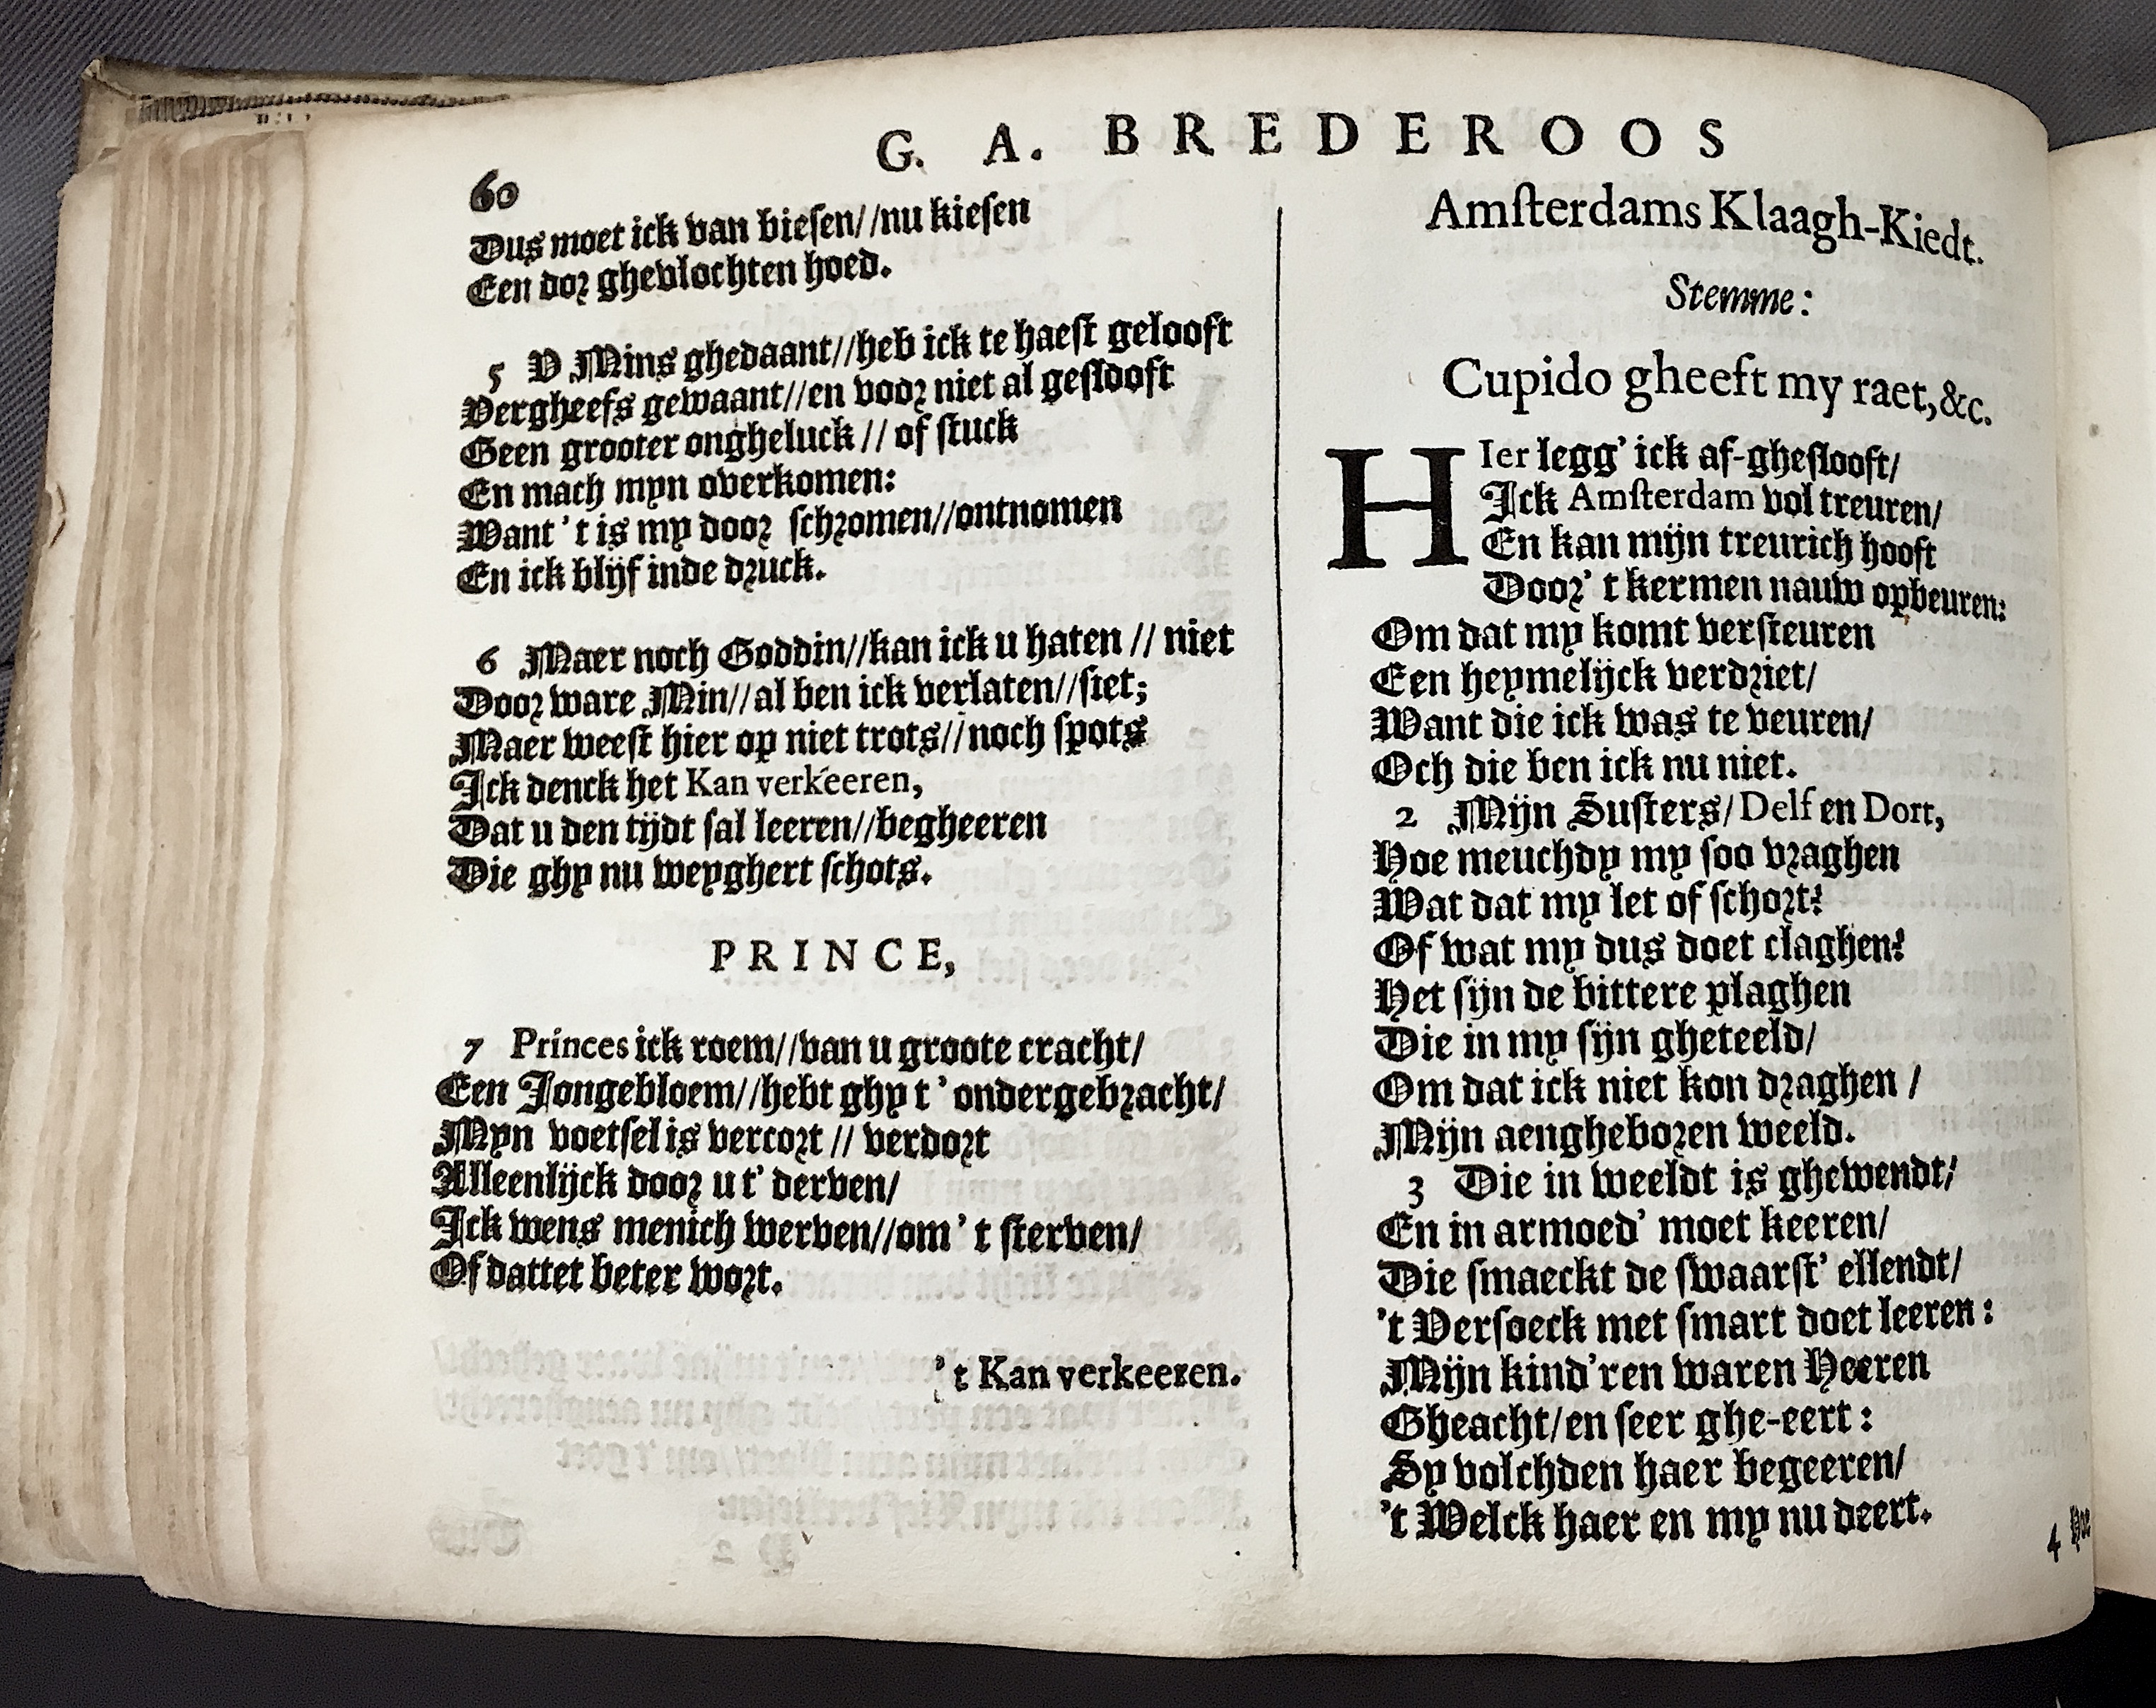 G. A. BREDEROOS
60
Dus moet ick van biesen//nu kiesen
Een dor ghevlochten hoed.
5 V Mins ghedaant//heb ick te haest gelooft
Vergheefs gewaant//en voor niet al geslooft
Geen grooter ongheluck // of stuck
En mach myn overkomen:
Want 't is my door schromen//ontnomen
En ick blijf inde druck.
6 Maer noch Goddin//kan ick u haten // niet
Door ware Min//al ben ick verlaten//siet;
Maer weest hier op niet trots//noch spots
Ick denck het Kan verkeeren,
Dat u den tijdt sal leeren//begheeren
Die ghy nu weyghert schots.
PRINCE,
7 Princes ick roem//van u groote cracht/
Een Jongebloem//hebt ghy t' ondergebracht/
Myn voetsel is vercort // verdort
Alleenlijck door u t' derven/
Ick wens menich werven//om 't sterven/
Of dattet beter wort.
't Kan verkeeren.
Amsterdams Klaagh-Kiedt.
Stemme:
Cupido gheeft my raet,&c.
HIer legg' ick af-gheslooft/
Ick Amsterdam vol treuren/
En kan mijn treurich hooft
Door 't kermen nauw opbeuren:
Om dat my komt versteuren
Een heymelijck verdriet/
Want die ick was te veuren/
Och die ben ick nu niet.
2 Mijn Susters/Delf en Dort,
Hoe meuchdy my soo vraghen
Wat dat my let of schort?
Of wat my dus doet claghen?
Het sijn de bittere plaghen
Die in my sijn gheteeld/
Om dat ick niet kon draghen /
Mijn aengheboren weeld.
3 Die in weeldt is ghewendt/
En in armoed' moet keeren/
Die smaeckt de swaarst' ellendt/
't Versoeck met smart doet leeren:
Mijn kind'ren waren Heeren
Gheacht/en seer ghe-eert:
Sy volchden haer begeeren/
't Welck haer en my nu deert.
4 Hoe